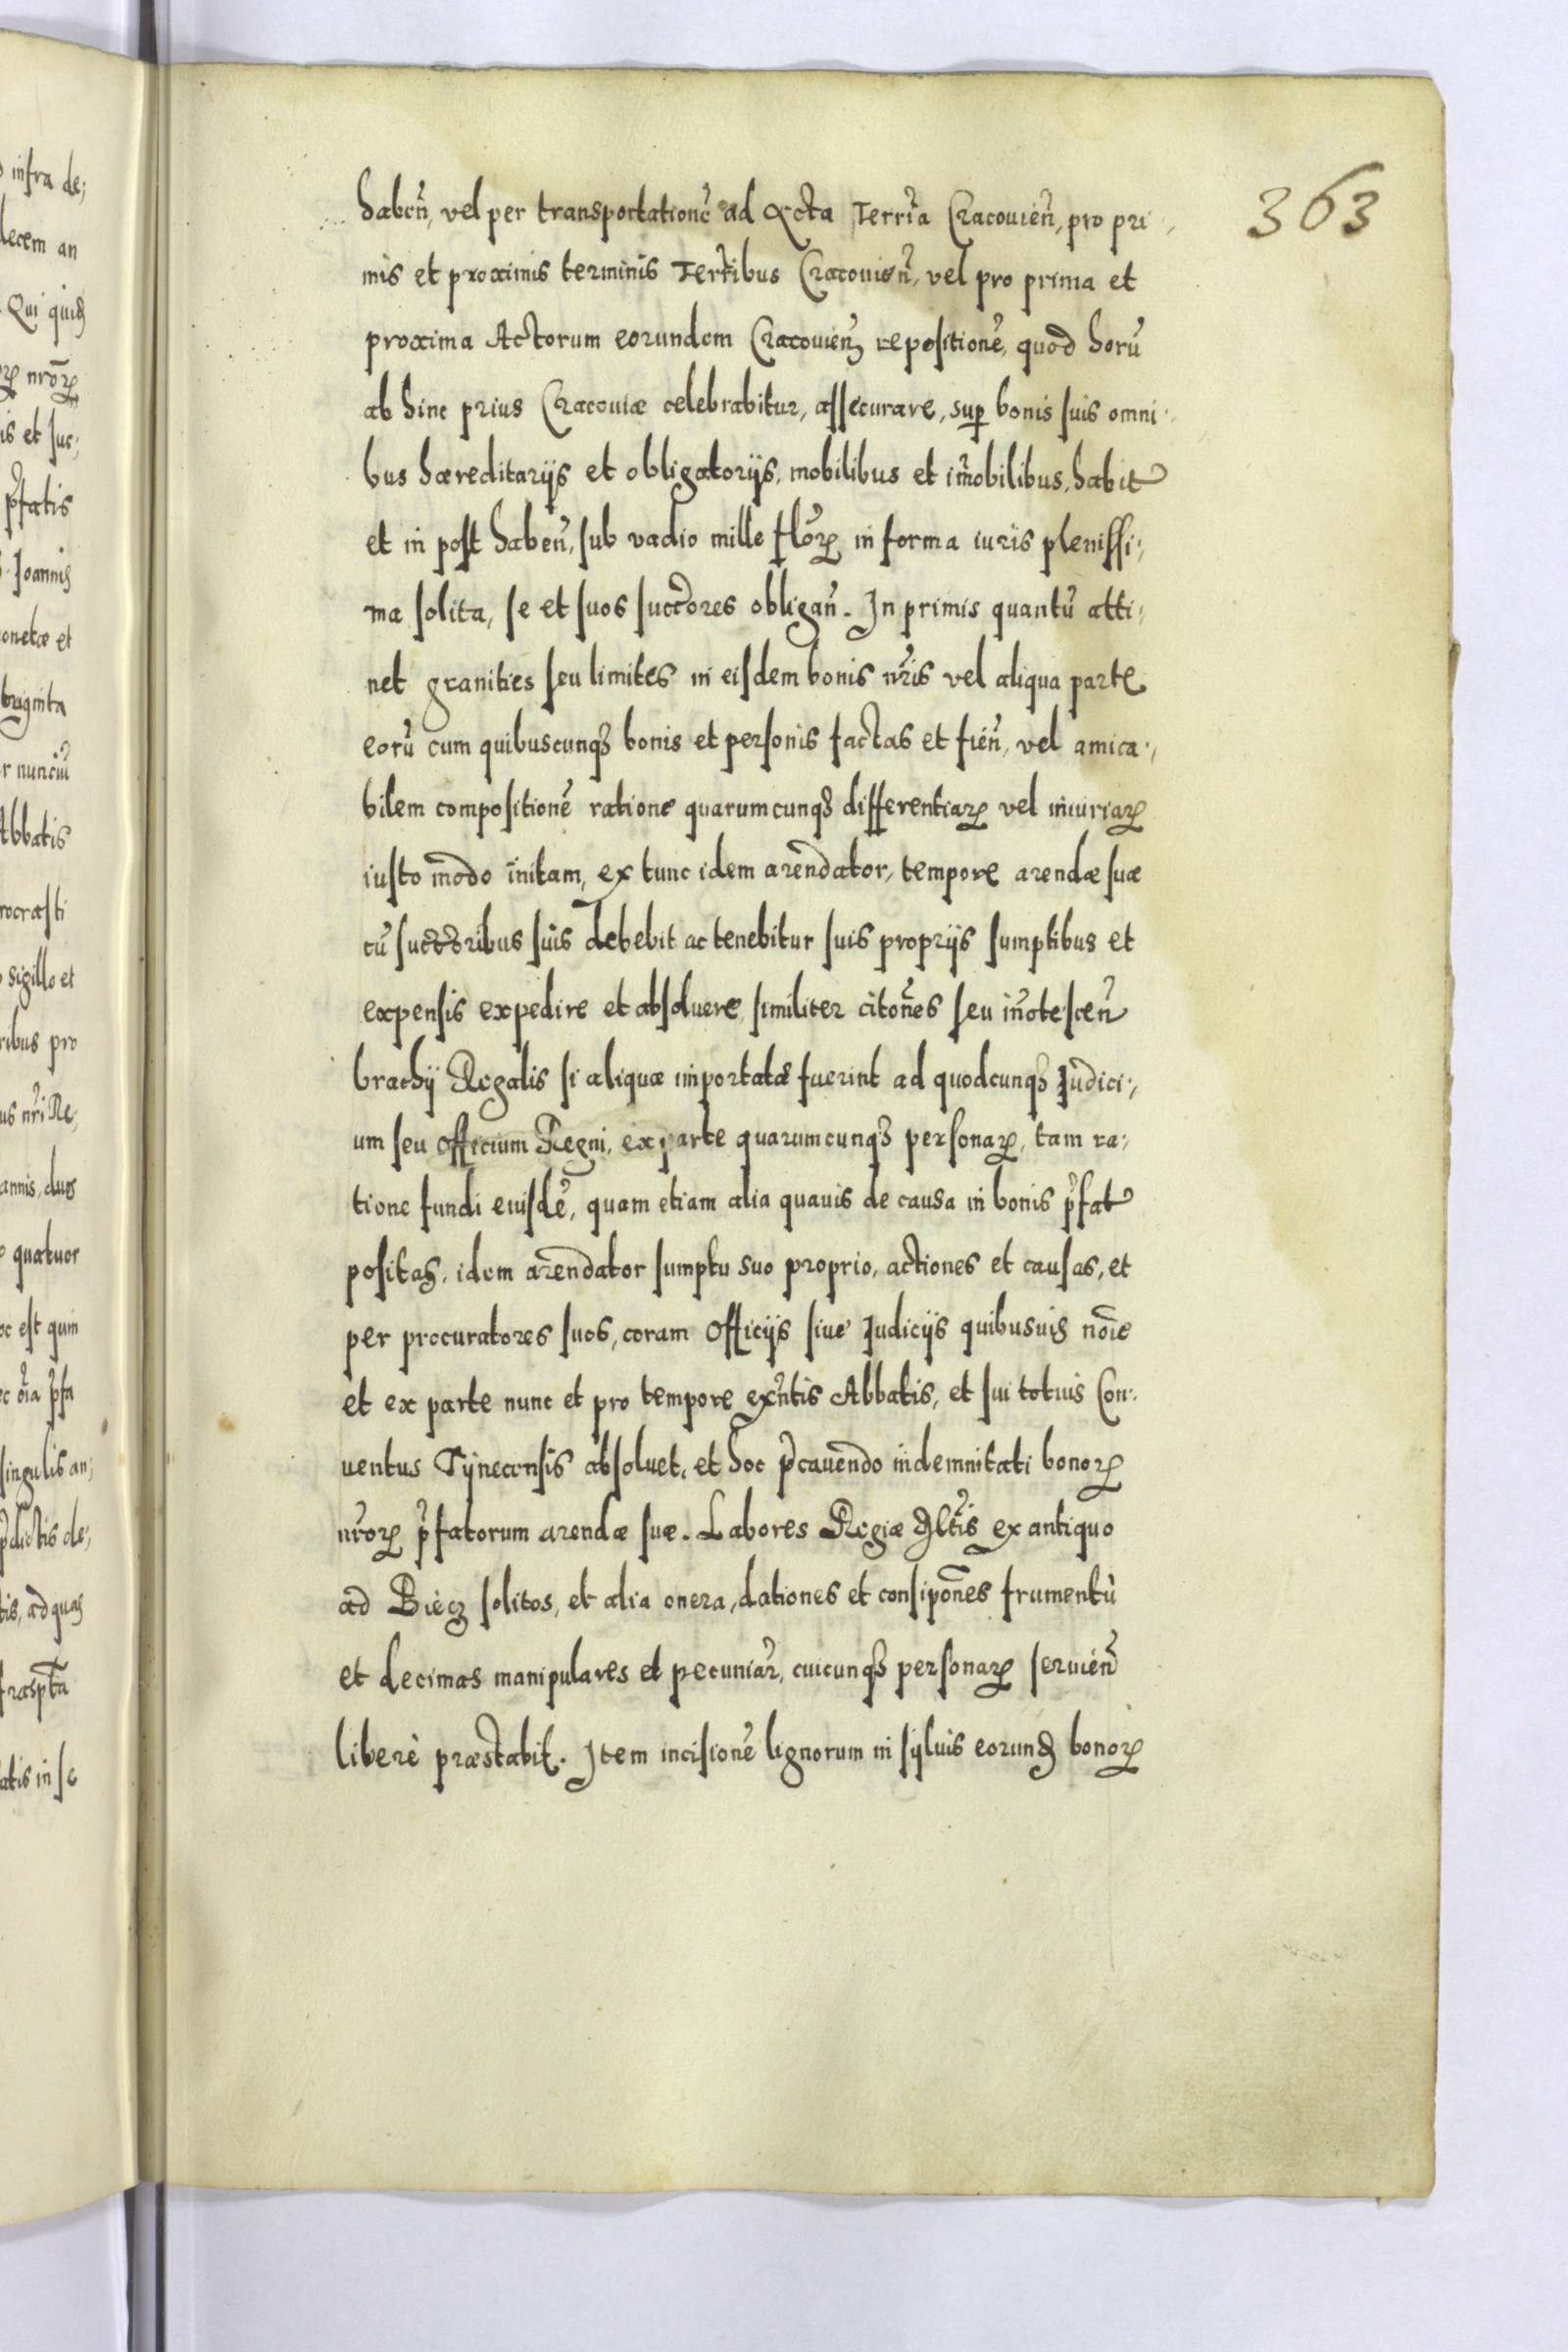 363
haben̄, vel per transportationē ad Acta Terrīa Cracouien̄, pro pri
mis et proximis terminis Terr̄ibus Cracouien̄, vel pro prima et
proxima Actorum eorundem Cracouien̄ repositionē, quod horū
ab hinc prius Cracouiæ celebrabitur, assecurare, sup̱ bonis suis omni
bus hæreditarijs et obligatorijs, mobilibus et im̄obilibus, habit
et in post haben̄, sub vadio mille flor̄ꝝ in forma iuris plenissi,
ma solita, se et suos succōres obligan̄. In primis quantū atti,
net granities seu limites in eisdem bonis nr̄is vel aliqua parte
eorū cum quibuscunqꝫ bonis et personis factas et fien̄, vel amica,
bilem compositionē ratione quarumcunqꝫ differentiaꝝ vel iniuriaꝝ
iusto modo īnitam, ex tunc idem arendator, tempore arendæ suæ
cū succtoribus suis debebit ac tenebitur suis proprijs sumptibus et
expensis expedire et absoluere, similiter citōnes seu in̄otescen̄
brachÿ Regalis si aliquæ importatæ fuerint ad quodcunqꝫ Iudici,
um seu Officium Regni, ex parte quarumcunqꝫ personaꝝ, tam ra,
tione fundi eiusdē, quam etiam alia quauis de causa in bonis p̄fat
positas, idem arendator sumptu suo proprio, actiones et causas, et
per procuratores suos, coram Officijs siue Iudicijs quibusuis nōie
et ex parte nunc et pro tempore exn̄tis Abbatis, et sui totius Con
uentus Tÿnecensis absoluet, et hoc p̄cauendo indemnitati bonoꝝ
nr̄oꝝ p̄fatorum arendæ suæ. Labores Regiæ Mt̄is ex antiquo
ad Biecz solitos, et alia onera, dationes et consipōnes frumentū
et decimas manipulares et pecuniar̄, cuicunqꝫ personaꝝ seruien̄
liberè præstabit. Item incisionē lignorum in sÿluis eorunđ bonoꝝ